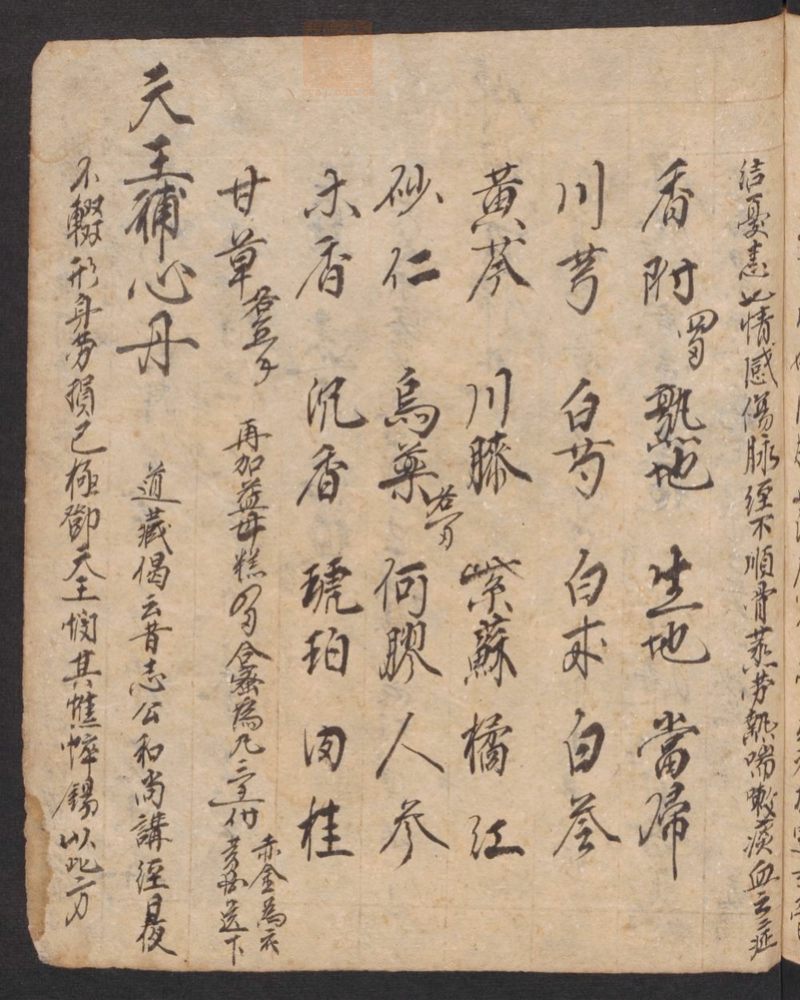 結憂恚七情感傷脉經不順骨蒸劳熱喘嗽痰血之症
香附 四两 熟地 生地 當帰
川芎 白芍 白朮 白苓
黄芩 川膝 紫蘇 橘红
砂仁 烏藥 各一两 何膠 人参
木香 沉香 琥珀 肉桂
甘草 各五千 再加益母糕四两 合蜜為凡 赤金為衣 送下
天王補心丹 道藏偈云昔志公和尚講經日夜
不輟形身劳損已極鄧天王憫其憔悴錫以此方